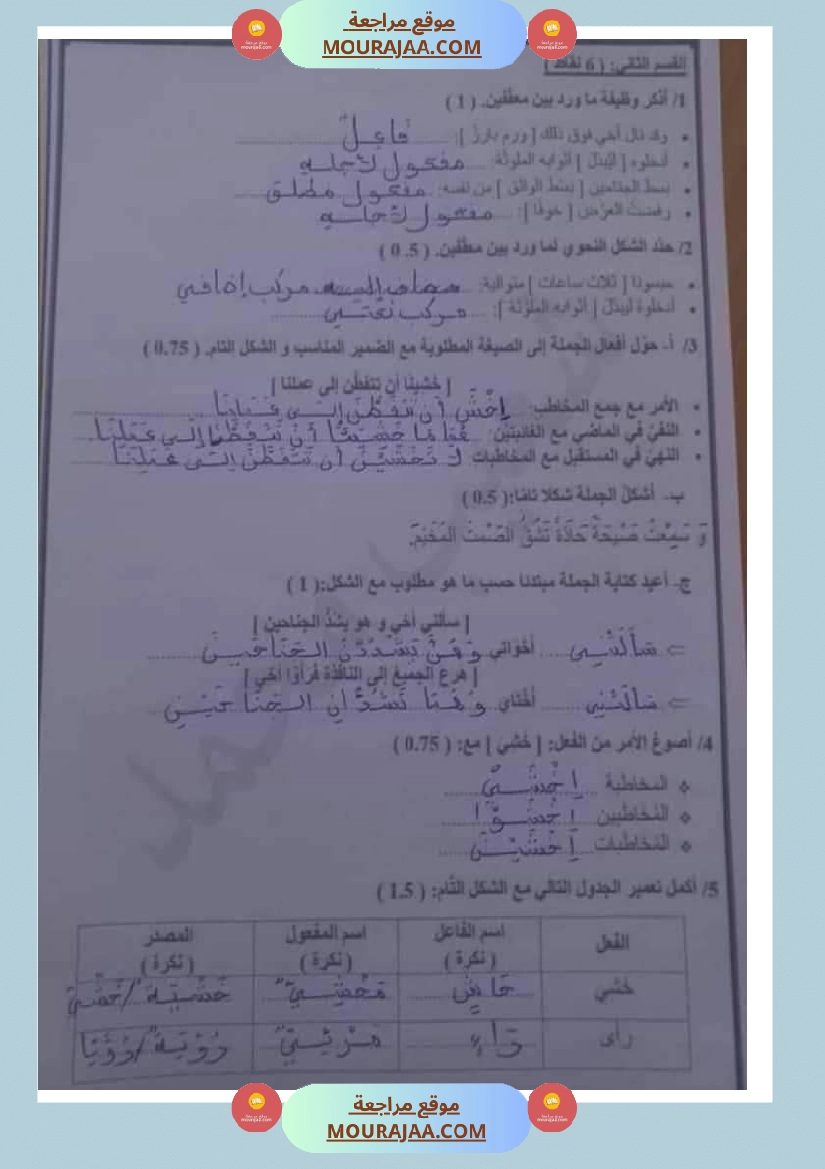 موقع مراجعة
MOURAJAA.COM
القسم الثاني: ( 6 نقاط )
1/ أذكر وظيفة ما ورد بين معقّفين. ( 1 )
• وقد نال أخي فوق ذلك [ ورم بارز ]: فاعل
• أدخلوه [ ليبدّل ] أثوابه الملوثة: مفعول لأجله
• بسط الجناحين [ بسط الواثق ] من نفسه: مفعول مطلق
• رفضت العرض [ خوفا ]: مفعول لأجله
2/ حدّد الشكل النحوي لما ورد بين معقّفين. ( 0.5 )
• حبسونا [ ثلاث ساعات ] متوالية: مركب إضافي
• أدخلوه ليبدّل [ أثوابه الملوّثة ]: مركب نعتي
3/ أ- حوّل أفعال الجملة إلى الصيغة المطلوبة مع الضمير المناسب و الشكل التام. ( 0.75 )
[ خشينا أن تتفطّن إلى عملنا ]
• الأمر مع جمع المخاطب:
• النفي في الماضي مع الغائبتين:
• النهي في المستقبل مع المخاطبات: لا تخشين أن تتفطّن إلى عملنا
ب- أشكل الجملة شكلا تامّا: ( 0.5 )
وَ سَمِعْتُ صَيْحَةً حَادَّةً تَشُقُّ الصَّمْتَ المُخَيِّمَ.
ج- أعيد كتابة الجملة مبتدئا حسب ما هو مطلوب مع الشكل: ( 1 )
[ سألني أخي و هو يشدّ الجناحين ]
سألتني أخواتي وهنّ يشددن الجناحين
[ هرع الجميع إلى النافذة فرأوا أخي ]
سألتني أختاي وهما تشدّان الجناحين
4/ أصوغ الأمر من الفعل: [ خشي ] مع: ( 0.75 )
❖ المخاطبة اخشي
❖ المخاطبين اخشوا
❖ المخاطبات اخشين
5/ أكمل تعمير الجدول التالي مع الشكل التّام: ( 1.5 )
الفعل اسم الفاعل (نكرة) اسم المفعول (نكرة) المصدر (نكرة)
خشي خاشٍ مخشيّ خشية /
رأى راءٍ مرئيّ رؤية / رؤيا
موقع مراجعة
MOURAJAA.COM